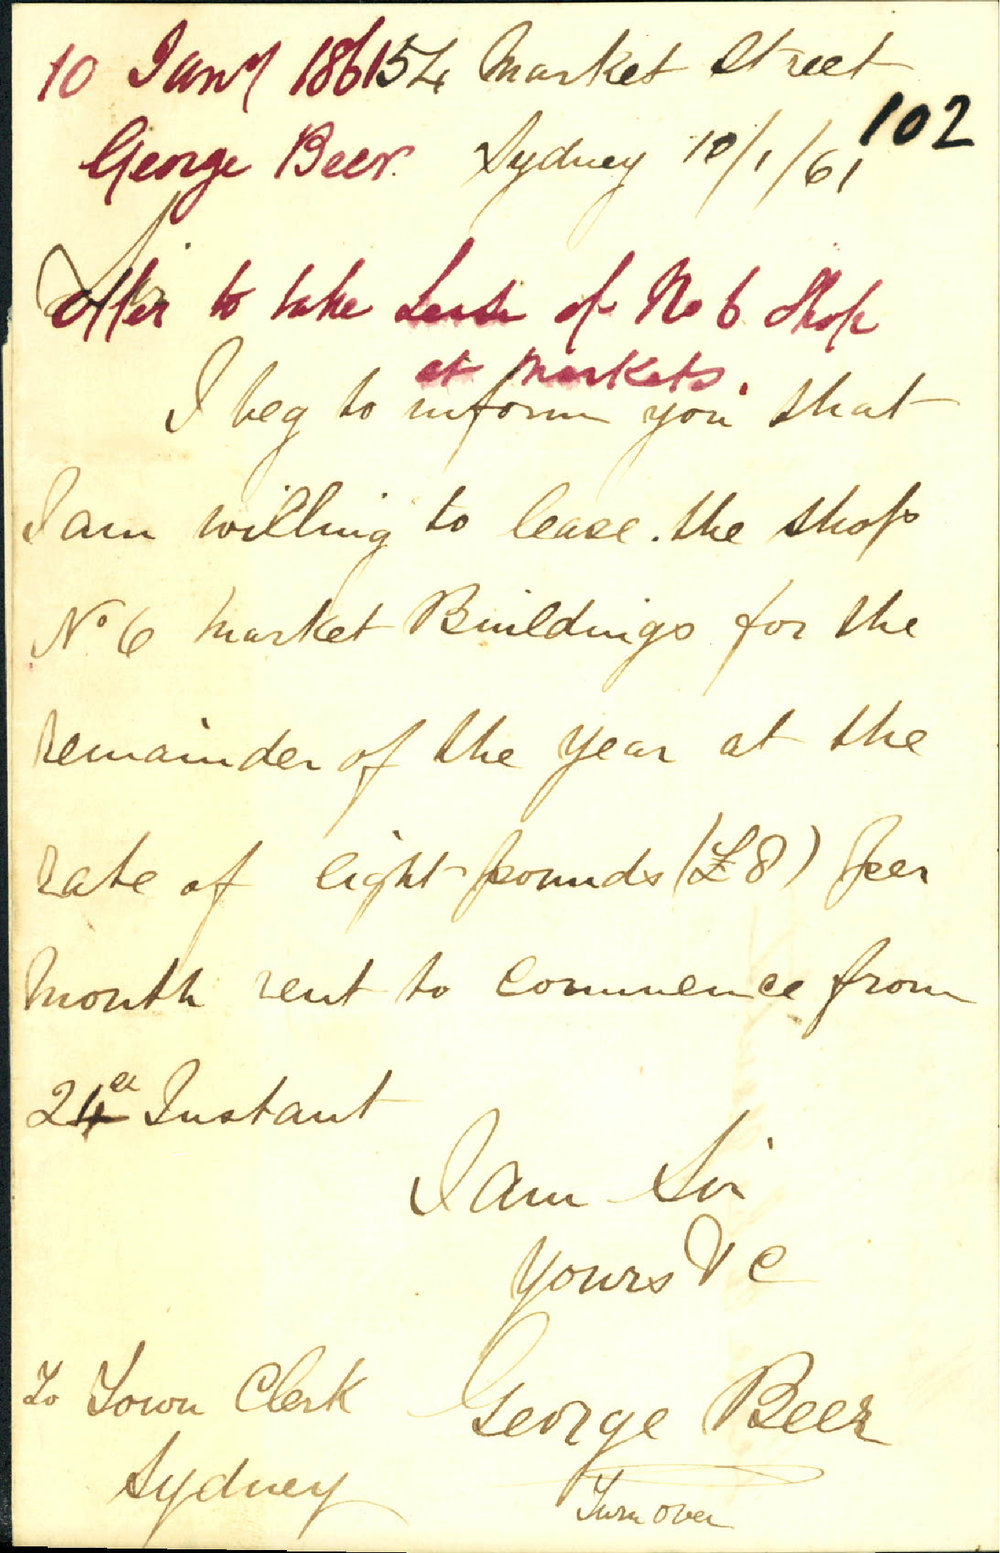 10 Jany 1861
George Beer.
54 Market Street
102
Sydney 10/1/61
Sir
Offer to take Lease of No 6 Shop
at Markets.
I beg to inform you that
I am willing to lease. the shop
No 6 Market Buildings for the
remainder of the year at the
rate of eight pounds (£8) per
month rent to commence from
24 Instant
I am Sir
Yours &c
George Beer
To Town Clerk
Sydney
Turn over